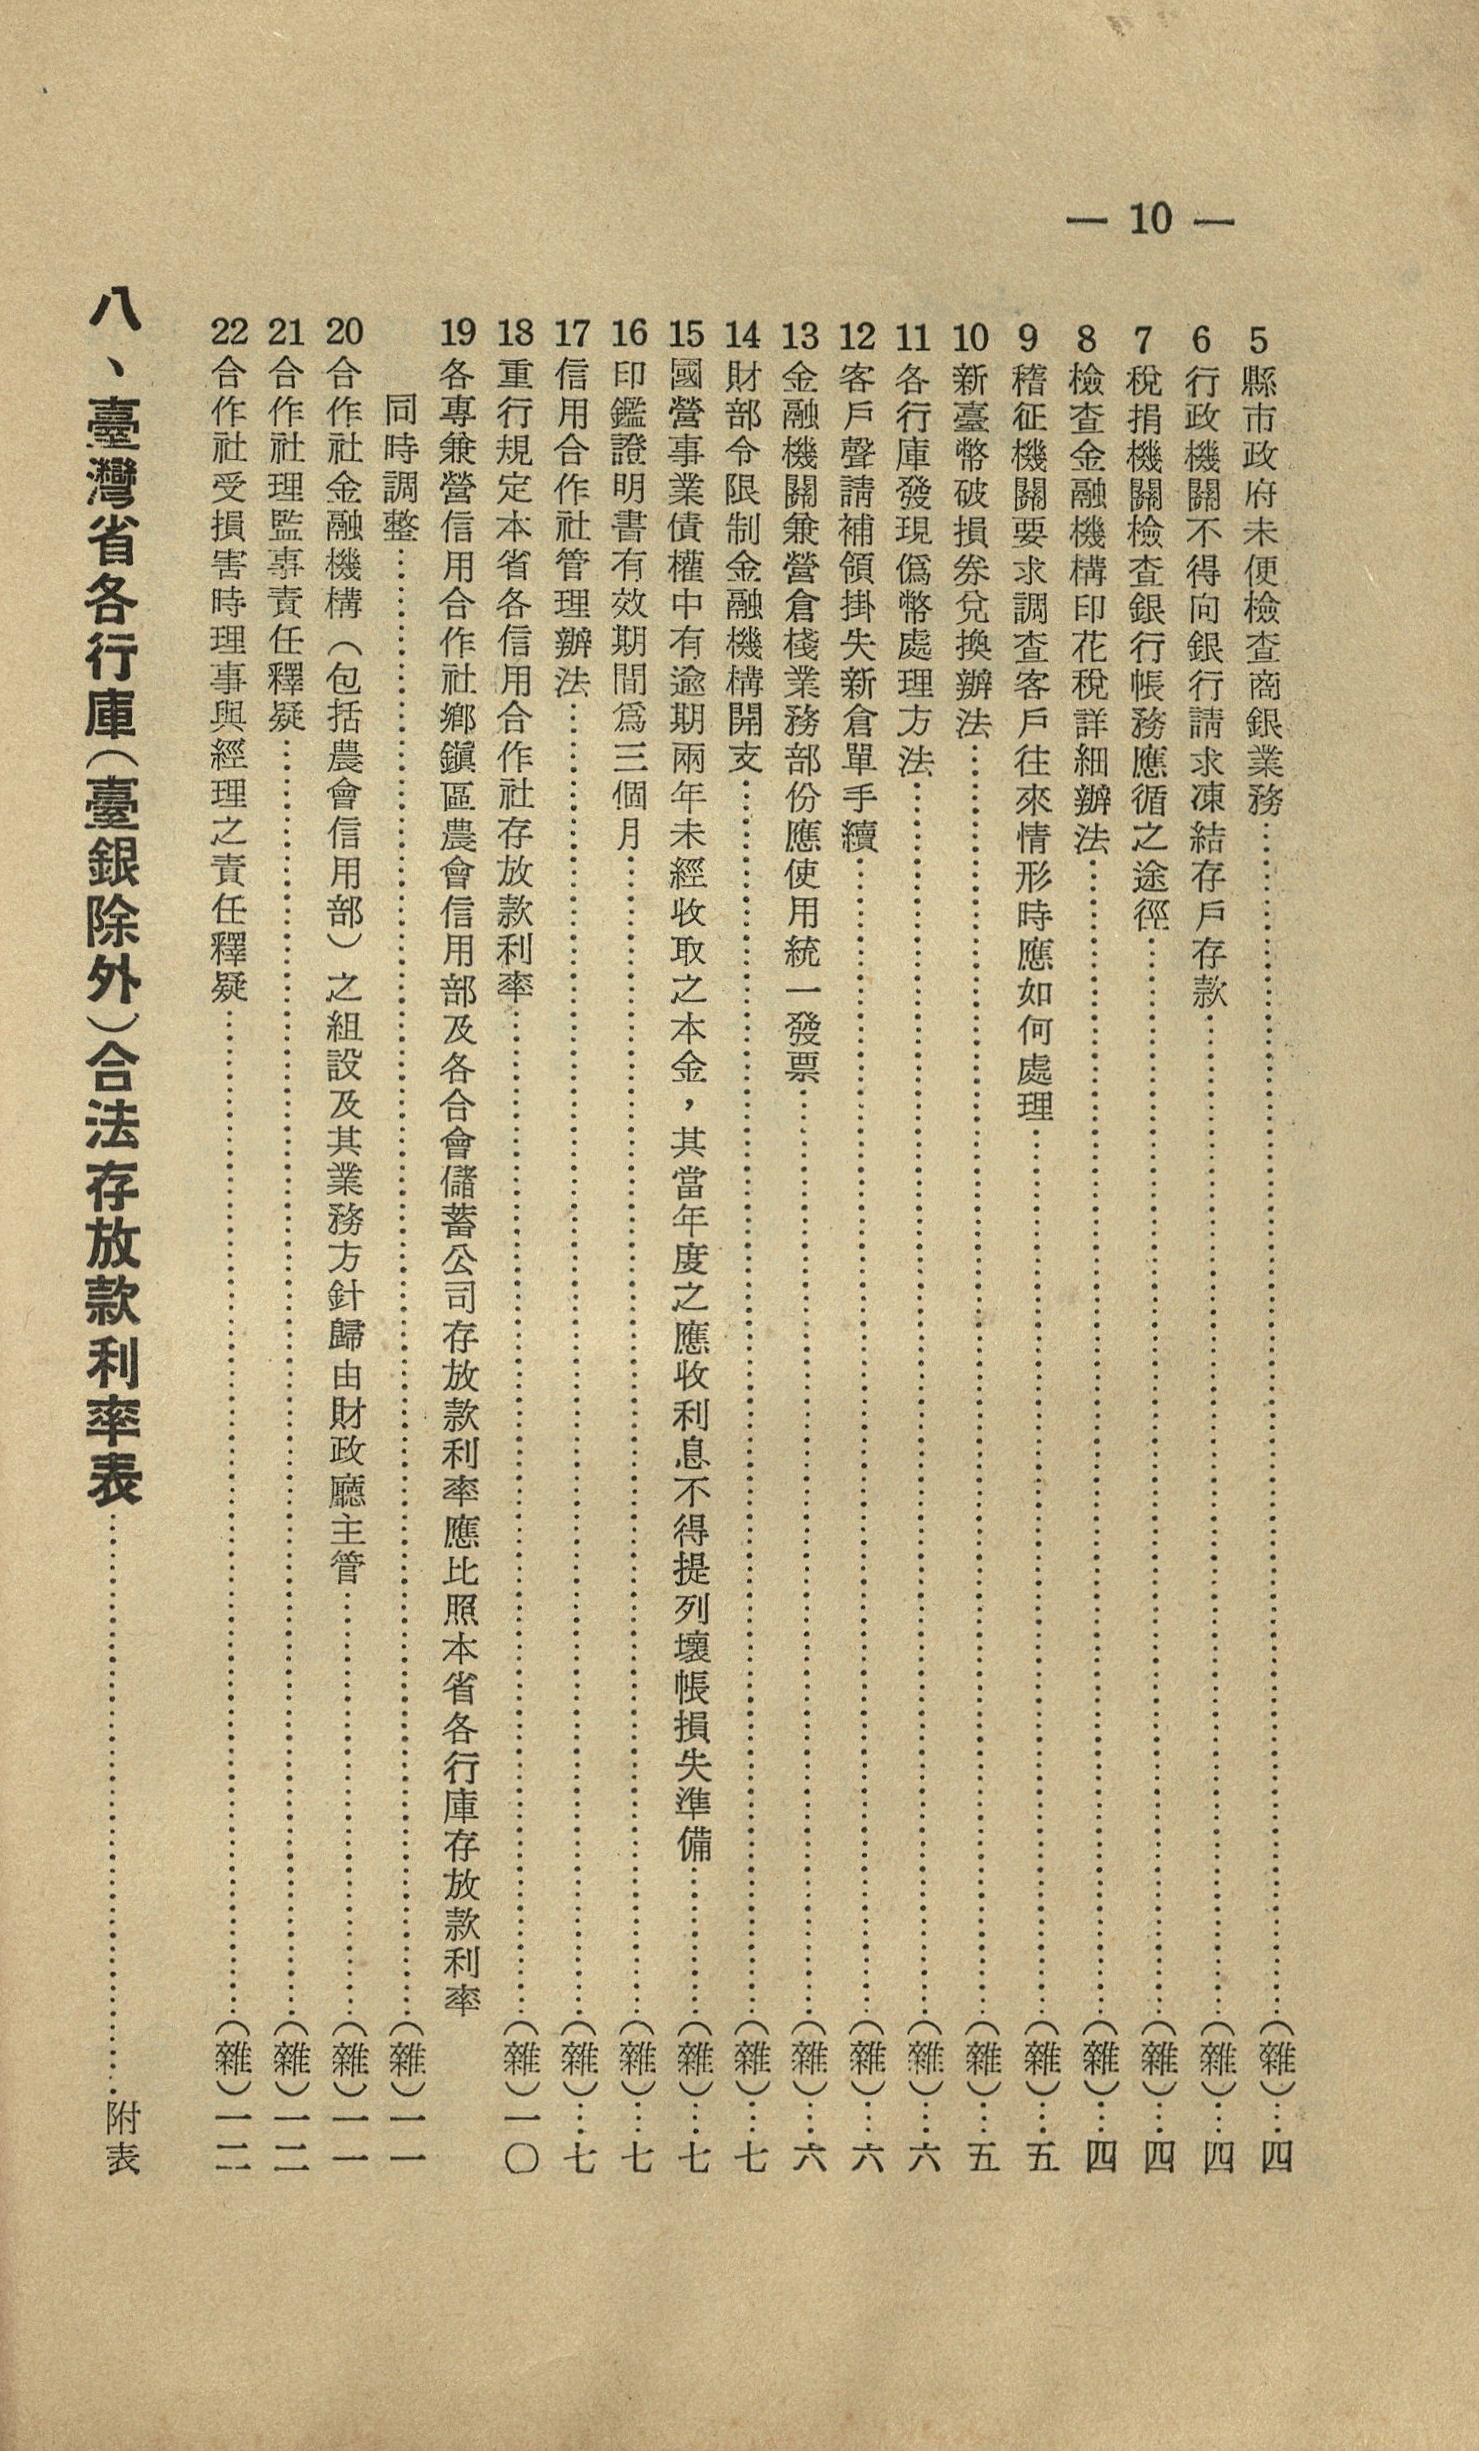 — 10 —
5縣市政府未便檢查商銀業務……(雜)…四
6行政機關不得向銀行請求凍結存戶存款……(雜)…四
7稅捐機關檢查銀行帳務應循之途徑……(雜)…四
8檢查金融機構印花稅詳細辦法……(雜)…四
9稽征機關要求調查客戶往來情形時應如何處理……(雜)…五
10新臺幣破損券兌換辦法……(雜)…五
11各行庫發現僞幣處理方法……(雜)…六
12客戶聲請補領掛失新倉單手續……(雜)…六
13金融機關兼營倉棧業務部份應使用統一發票……(雜)…六
14財部令限制金融機構開支……(雜)…七
15國營事業債權中有逾期兩年未經收取之本金，其當年度之應收利息不得提列壞帳損失準備……(雜)…七
16印鑑證明書有效期間爲三個月……(雜)…七
17信用合作社管理辦法……(雜)…七
18重行規定本省各信用合作社存放款利率……(雜)一〇
19各專兼營信用合作社鄉鎭區農會信用部及各合會儲蓄公司存放款利率應比照本省各行庫存放款利率
同時調整……(雜)一一
20合作社金融機構（包括農會信用部）之組設及其業務方針歸由財政廳主管……(雜)一一
21合作社理監事責任釋疑……(雜)一二
22合作社受損害時理事與經理之責任釋疑……(雜)一二
八、臺灣省各行庫（臺銀除外）合法存放款利率表……附表